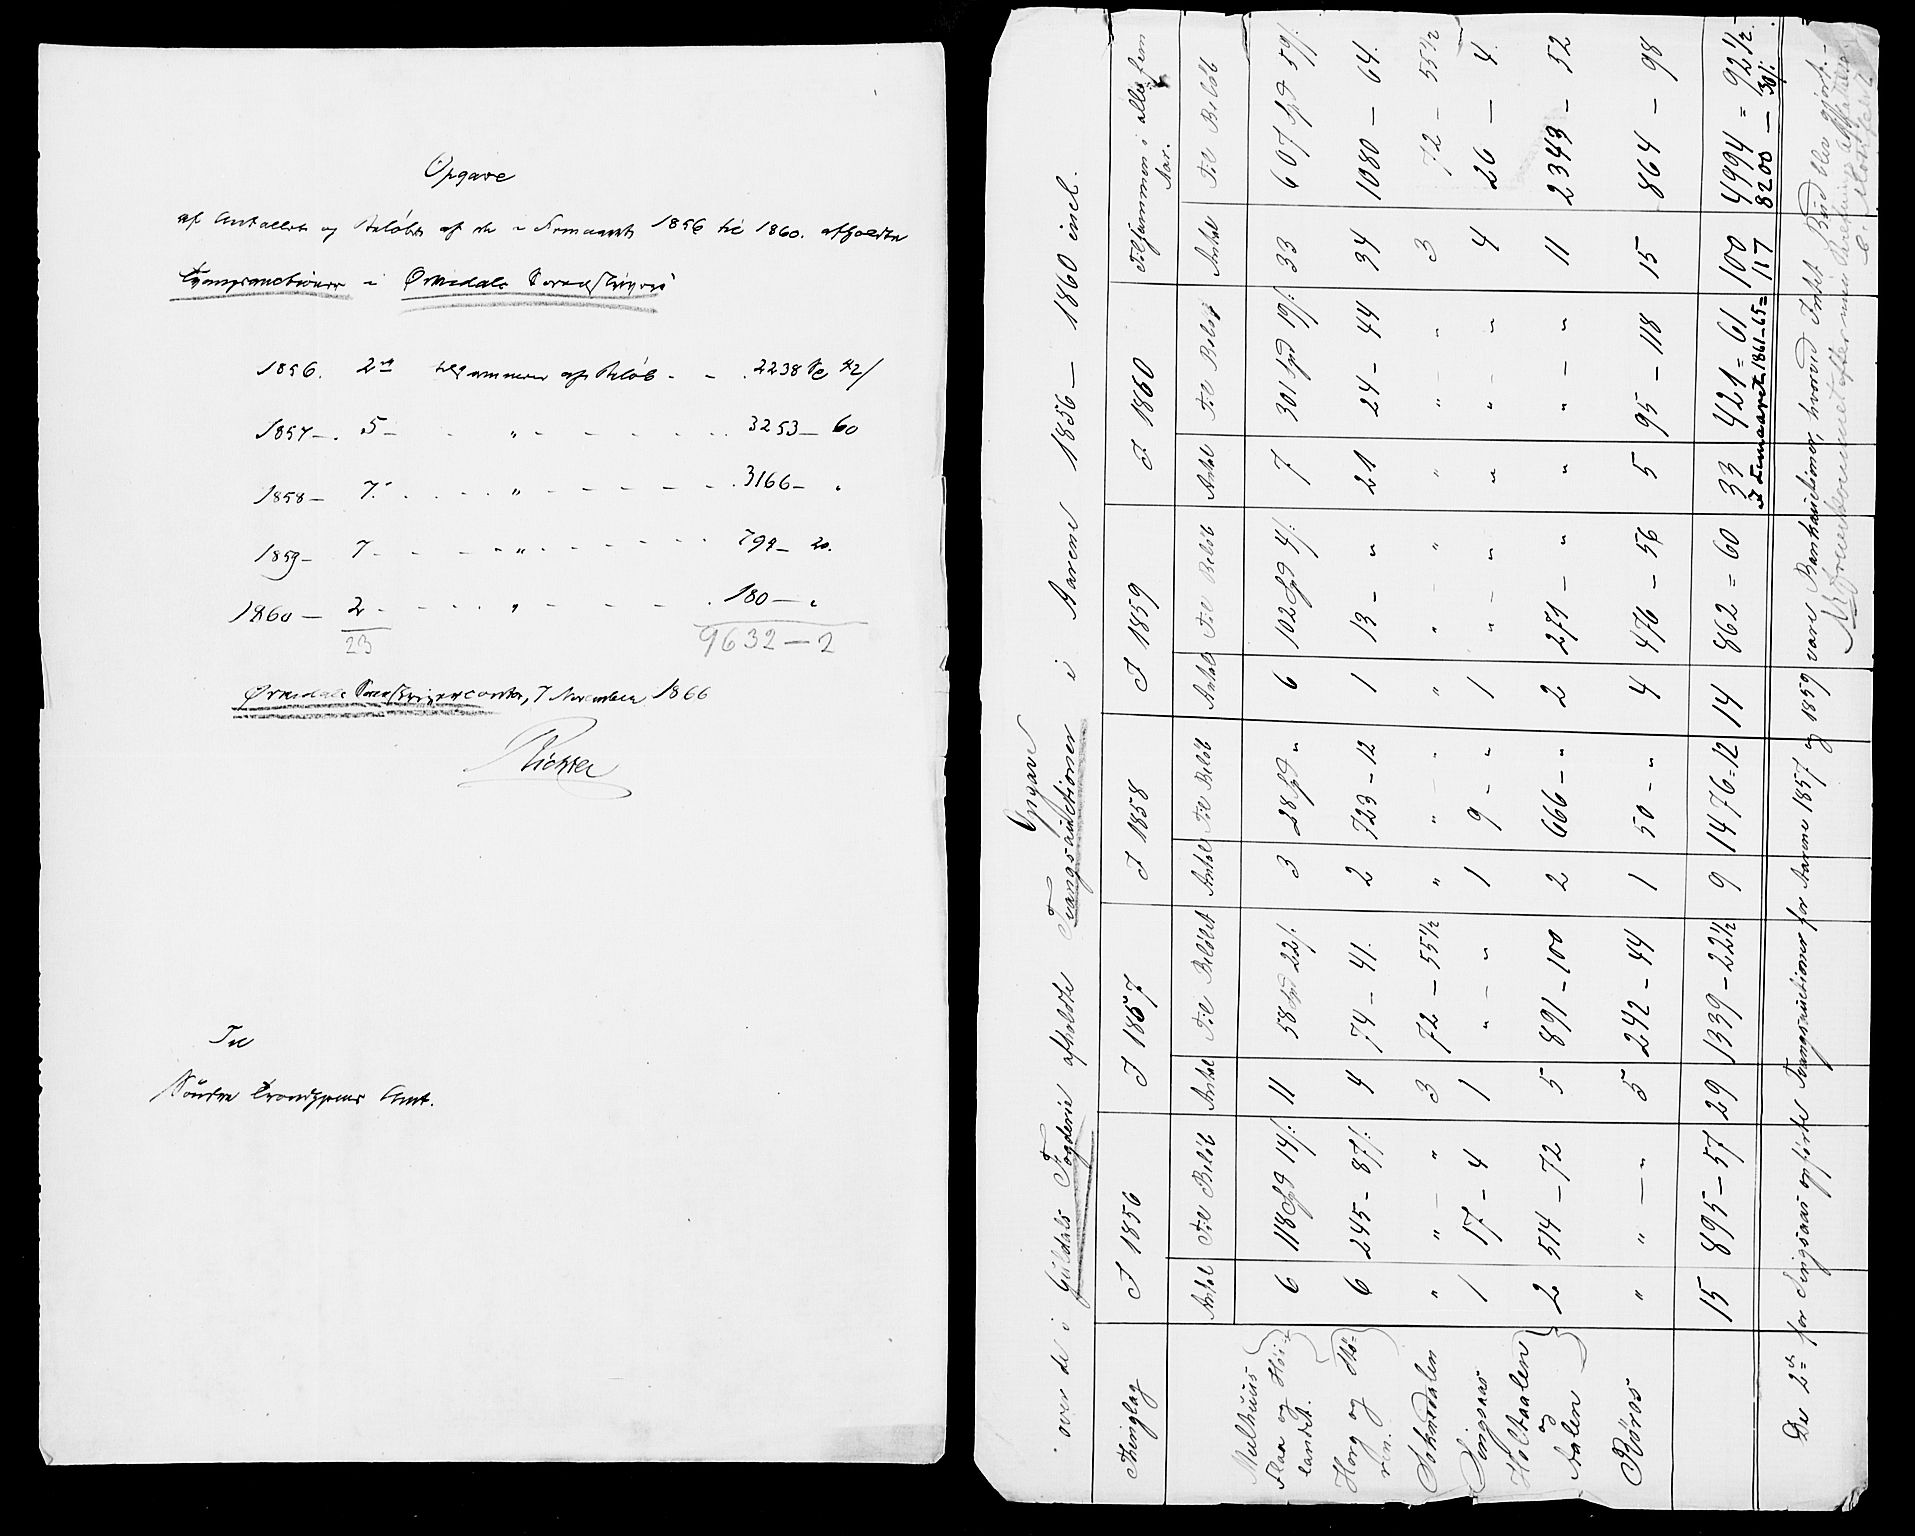 Opgave
af Antallet og Beløbet af de i Femaaret 1856 til 1860 afholdte
Tvangsauctioner i Ørkedals Sorenskriveri
1856. 2de tilsammen af Beløb - - 2238 Sp 42/
1857 - 5 - - " - - - - 3253 - 60
1858 - 7 - - - - " - - - - - 3166 - "
1859 - 7 - - - - " - - - - - 794 - 20.
1860 - 2 - - - - " - - - - 180 - "
23 9632 - 2
Ørkedals Sorenskrivercontor, 7 November 1866
Richter
Til
Søndre Trondhjems Amt.
Opgave
over de i Guldals Fogderie afholdte Tvangsauctioner i Aarene 1856 - 1860 incl.
Thinglag I 1856 I 1857 I 1858 I 1859 I 1860 Tilsammen i alle fem Aar.
Antal Til Beløb Antal Til Beløbet Antal Til Beløb Antal Til Beløb Antal Til Beløb Antal Til Beløb
Melhuus
Flaa og Høi-
landet. 6 118 Spd 14/: 11 58 Spd 22/: 3 28 Spd " 6 102 Spd 4/: 7 301 Spd 19/: 33 607 Spd 59/:
Horg og Stø-
ren. 6 245 - 87/: 4 74 - 41. 2 723 - 12 1 13 - " 21 24 - 44 34 1080 - 64.
Soknedalen " " - " 3 72 - 55 1/2 " " - " " " - " " " - " 3 72 - 55 1/2
Singsaas 1 17 - 4 1 " - " 1 9 - " 1 " - " " " - " 4 26 - 4
Holtaalen
og
Aalen 2 514 - 72 5 891 - 100 2 666 - " 2 271 - " " " - " 11 2343 - 52
Røros " " - " 5 242 - 44 1 50 - " 4 476 - 56 5 95 - 118 15 864 - 98
15 895 - 57 29 1339 - 22 1/2 9 1476 = 12 14 862 = 60 33 421 = 61 100 4994 = 92 1/2
I Femaaret 1861-65 = 117 8200 - 30/:
De 2de for Singsaas opførte Tvangsauctioner for Aarene 1857 og 1859 vare Bankauctioner, hvorved Intet Bud blev gjort. -